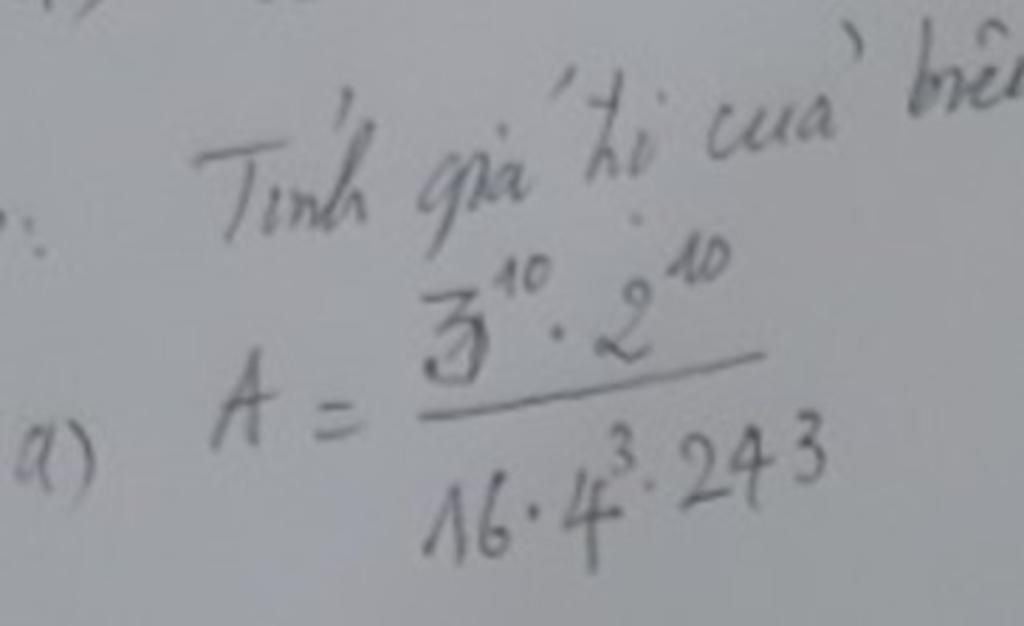 Tính giá trị của
a) A = \frac{3^{10} \cdot 2^{10}}{16 \cdot 4^3 \cdot 243}